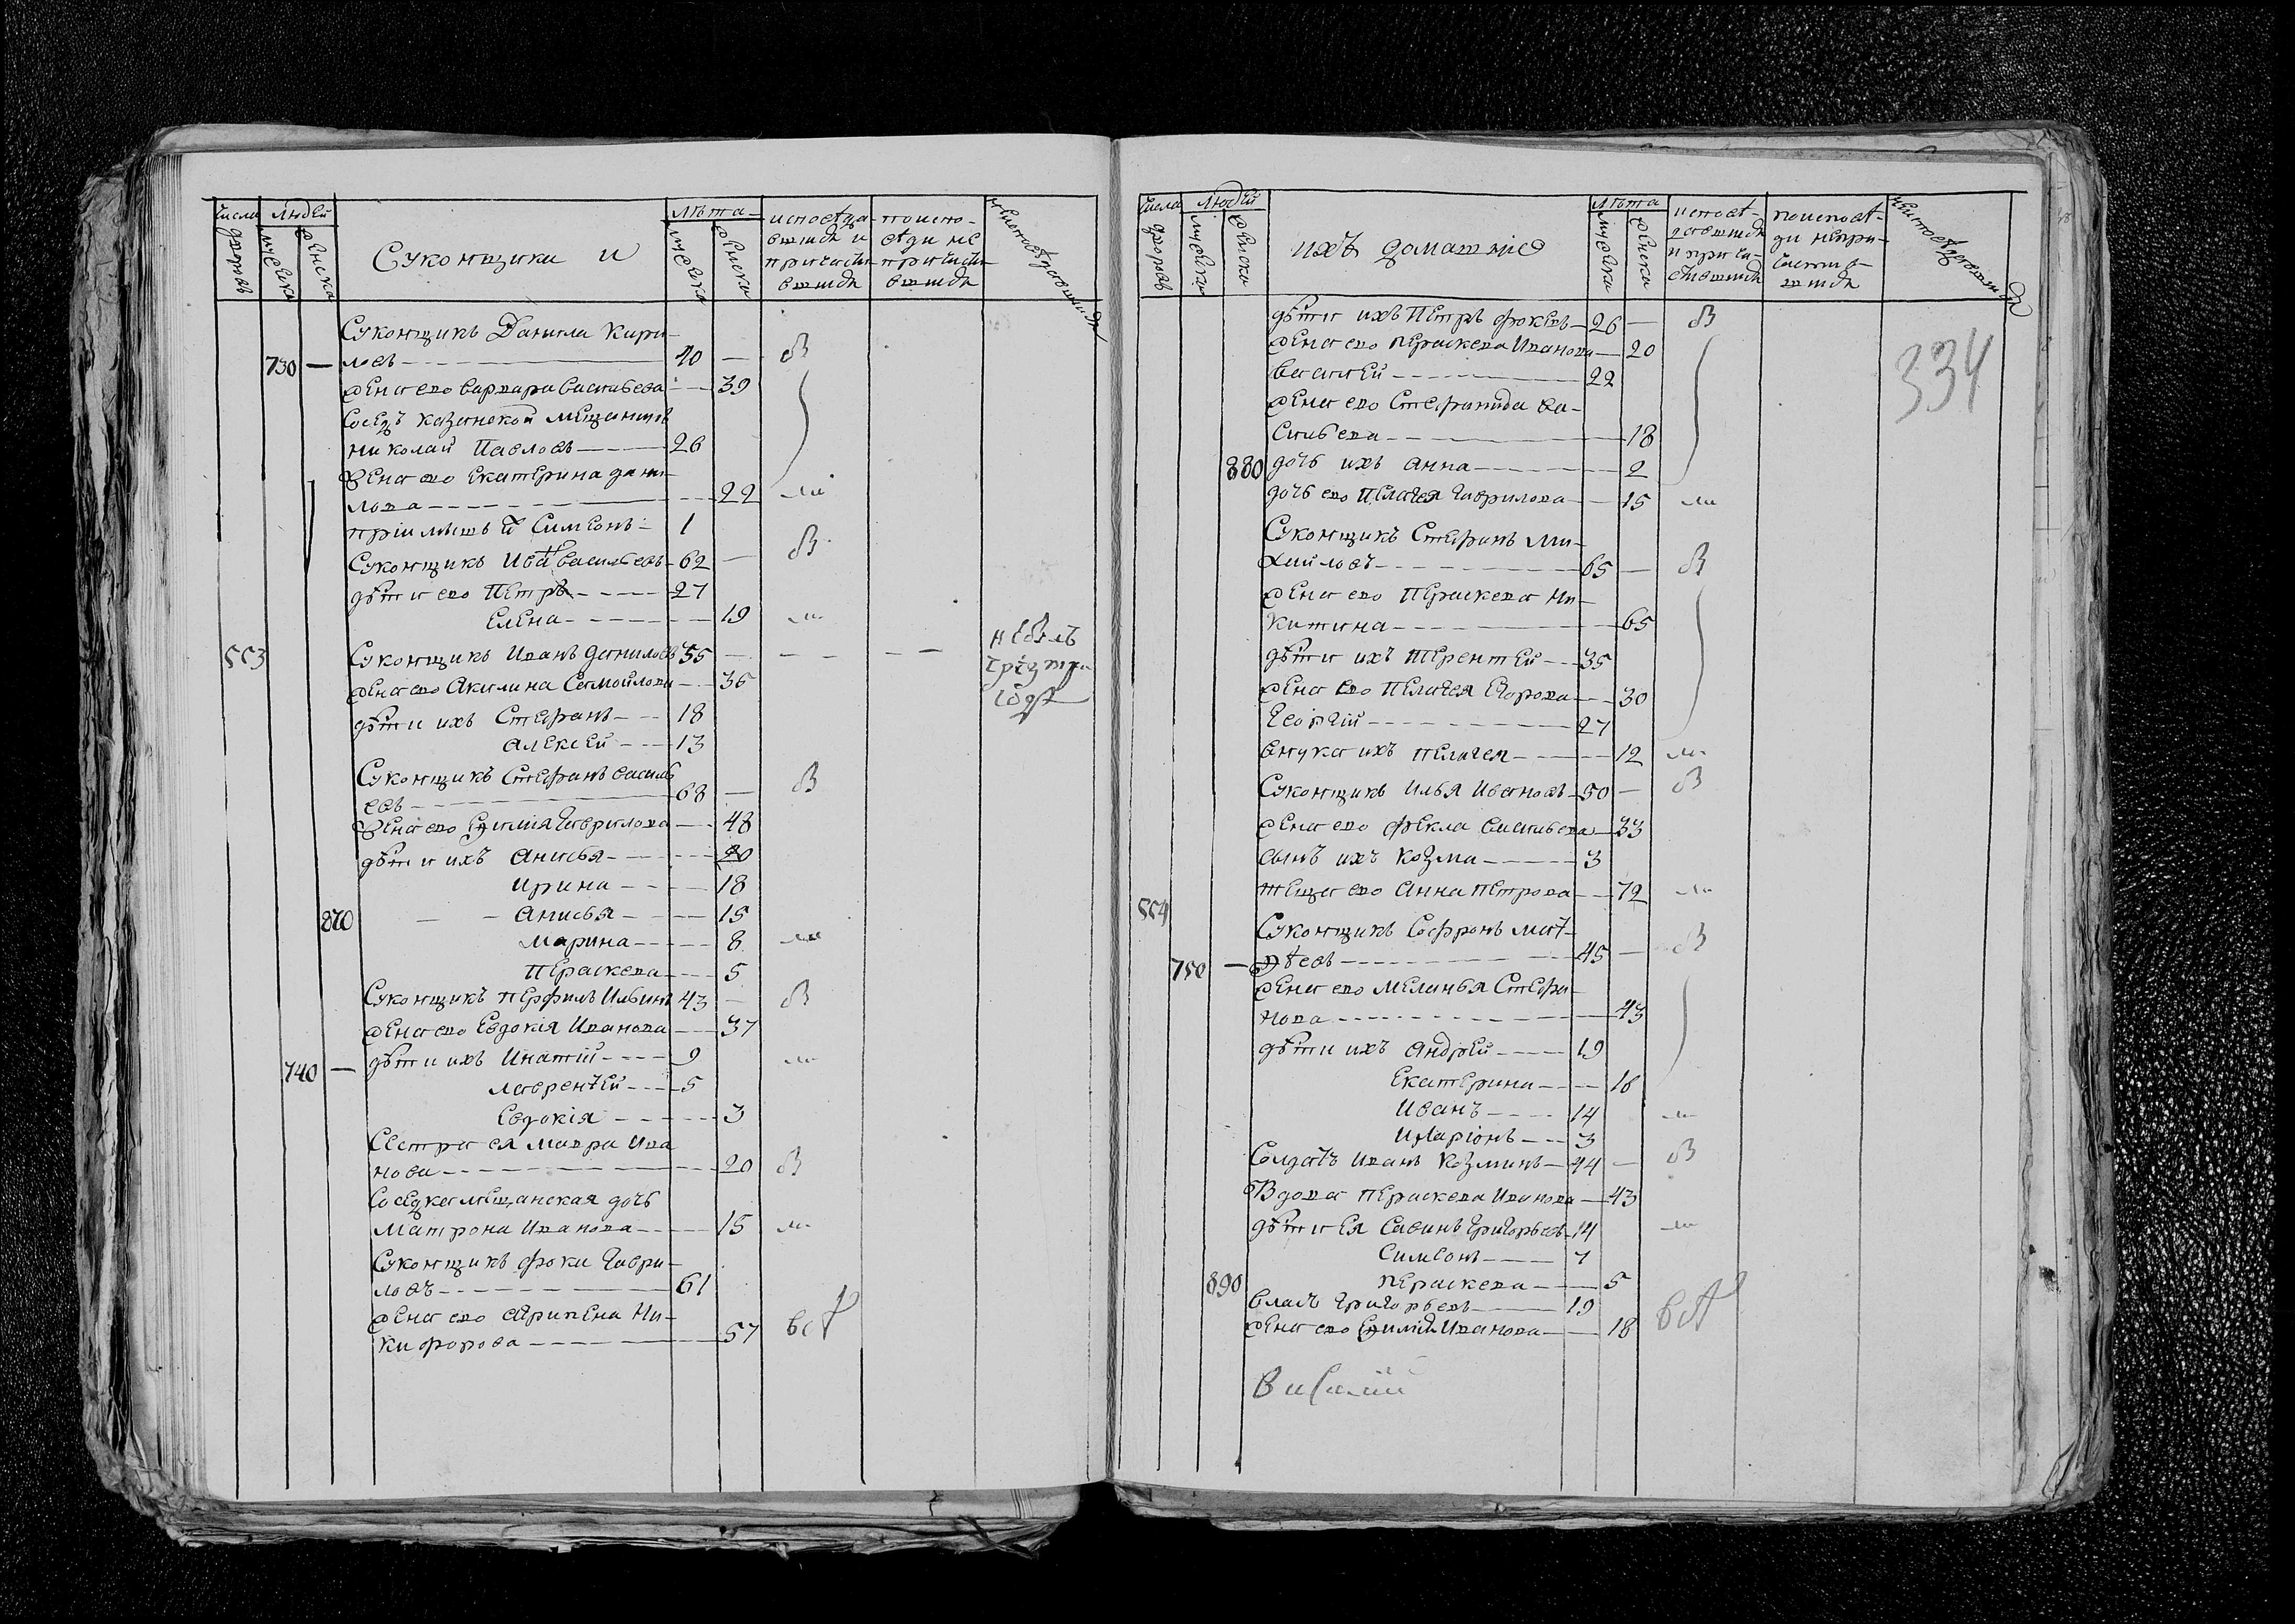 Числа
Людей
дворовъ
мужеска
женска
Суконщики и
лѣта
мужеска
женска
исповѣда-
вшихся и
причасти-
вшихся
по испо-
вѣди не
причасти-
вшихся
неисповѣдовавшихся
Суконщикъ Данила Кири-
730 — ловъ 40 — в
жена ево Варвара Васильева 39
Соседъ казанской мещанинъ
Николай Павловъ 26
жена ево Екатерина Дани-
лова 22
Симеонъ 1
Суконщикъ Иванъ Васильевъ 62 — в
дѣти ево Петръ 27
Елена 19
553 Суконщикъ Иванъ Даниловъ 35
жена ево Акилина Самойлова 36
дѣти ихъ Стефанъ 18
Алексей 13
Суконщикъ Стефанъ Василь
евъ 68 — в
жена ево Гаврилова 48
дѣти ихъ Анисья 20
Ирина 18
870 Анисья 15
Марина 8
Пераскева 5
Суконщикъ Перфилъ Ильинъ 43 — в
жена ево Евдокія Иванова 37
740 — дѣти ихъ Игнатій 9
Лаврентей 5
Евдокія 3
Сестра ея Мавра Ива
нова 20 в
Соседка мещанская дочь
Матрона Иванова 15
Суконщикъ Фока Гаври-
ловъ 61
жена ево Агрипена Ни-
кифорова 57
Числа
Людей
дворовъ
мужеска
женска
ихъ домашніе
лѣта
мужеска
женска
исповѣ-
давшихся
и прича-
стившихся
по исповѣ-
ди непри-
частив-
шихся
неисповѣдовавшихся
334
дѣти ихъ Петръ Фокевъ 26 — в
жена ево Пераскева Иванова 20
Василей 22
жена ево Стефанида Ва-
сильева 18
880 дочь ихъ Анна 2
дочь ево Пелагея Гаврилова 15
Суконщикъ Стефанъ Ми-
хайловъ 65 — в
жена ево Пераскева Ни-
китина 65
дѣти ихъ Терентей 35
жена ево Пелагея Егорова 30
Георгій 27
внука ихъ Пелагея 12
Суконщикъ Илья Ивановъ 50 — в
жена ево Фекла Васильева 33
сынъ ихъ Козма 3
теща ево Анна Петрова 72
554
Суконщикъ Софронъ Мат-
750 — вѣевъ 45 — в
жена ево Меланья Стефа-
нова 43
дѣти ихъ Андрей 19
Екатерина 16
Иванъ 14
Иларіонъ 3
Солдатъ Иванъ Козминъ 44 — в
Вдова Пераскева Иванова 43
дѣти ея Савинъ Григорьевъ 14
Симеонъ 7
890 Пераскева 5
Власъ Григорьевъ 19
жена ево Иванова 18